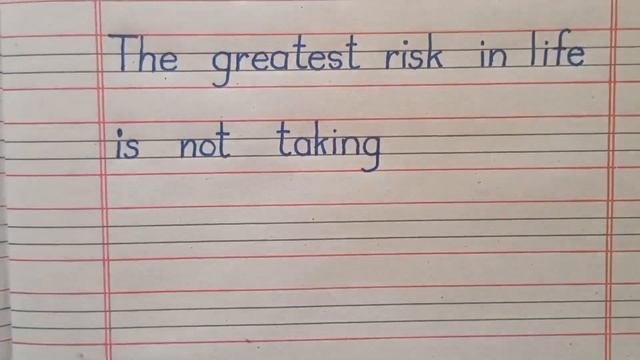 The greatest risk in life
is not taking